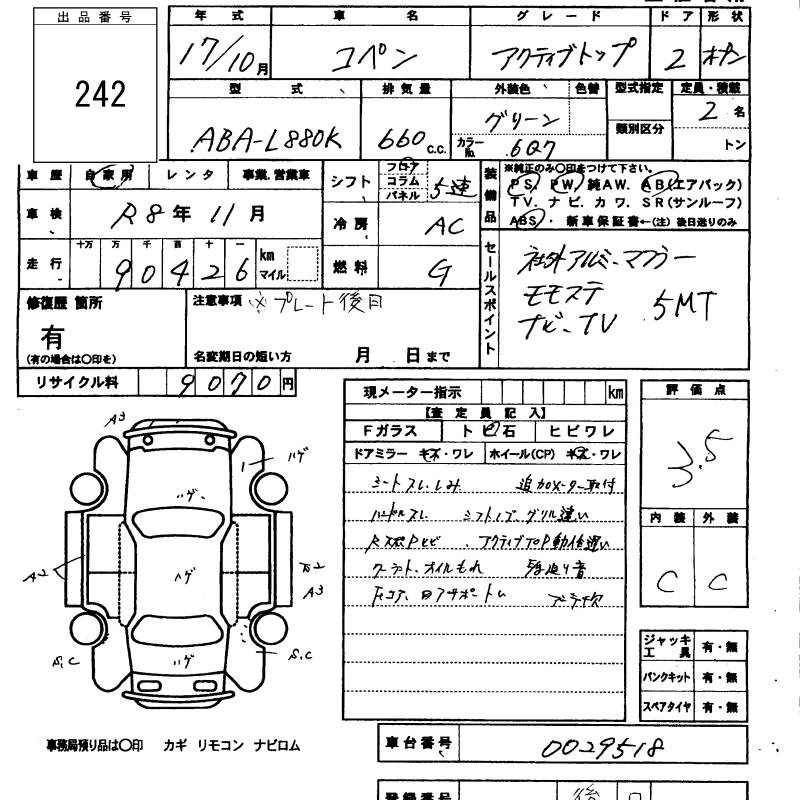 出品番号
242
年式 車名 グレード ドア 形状
17/10月 コペン アクティブトップ 2 オープン
型式 排気量 外装色 色替 型式指定 定員・積載
ABA-L880K 660c.c. グリーン 類別区分 2名
カラーNo. 6Q7 トン
車歴 自家用 レンタ 事業.営業車
シフト フロア コラム パネル 5速
装備品 ※純正のみ〇印をつけて下さい。
PS. PW. 純AW. AB(エアバック)
TV. ナビ. カワ. SR(サンルーフ)
ABS. 新車保証書←(注)後日送りのみ
車検 R8年11月
冷房 AC
走行 十万 万 千 百 十 一 km マイル
90426
燃料 G
セールスポイント
社外アルミ.マフラー
モモステ
ナビ.TV 5MT
修復歴 箇所
有
(有の場合は〇印を)
注意事項 ※プレート後日
名変期日の短い方 月 日まで
リサイクル料 9070円
現メーター指示 km
【査定員記入】
Fガラス トビ石 ヒビワレ
ドアミラー キズ・ワレ ホイール(CP) キズ・ワレ
シートスレ.しみ 追加メーター取付
ハンドルスレ シフトノブ.グリル違い
アクティブTOP動作
オイルもれ
評価点
3.5
内装 外装
C C
ジャッキ工具 有・無
パンクキット 有・無
スペアタイヤ 有・無
A3
ハゲ
ハゲ
A2
ハゲ
A2
A3
S.C
ハゲ
S.C
事務局預り品は〇印 カギ リモコン ナビロム
車台番号 0029518
登録番号 後日